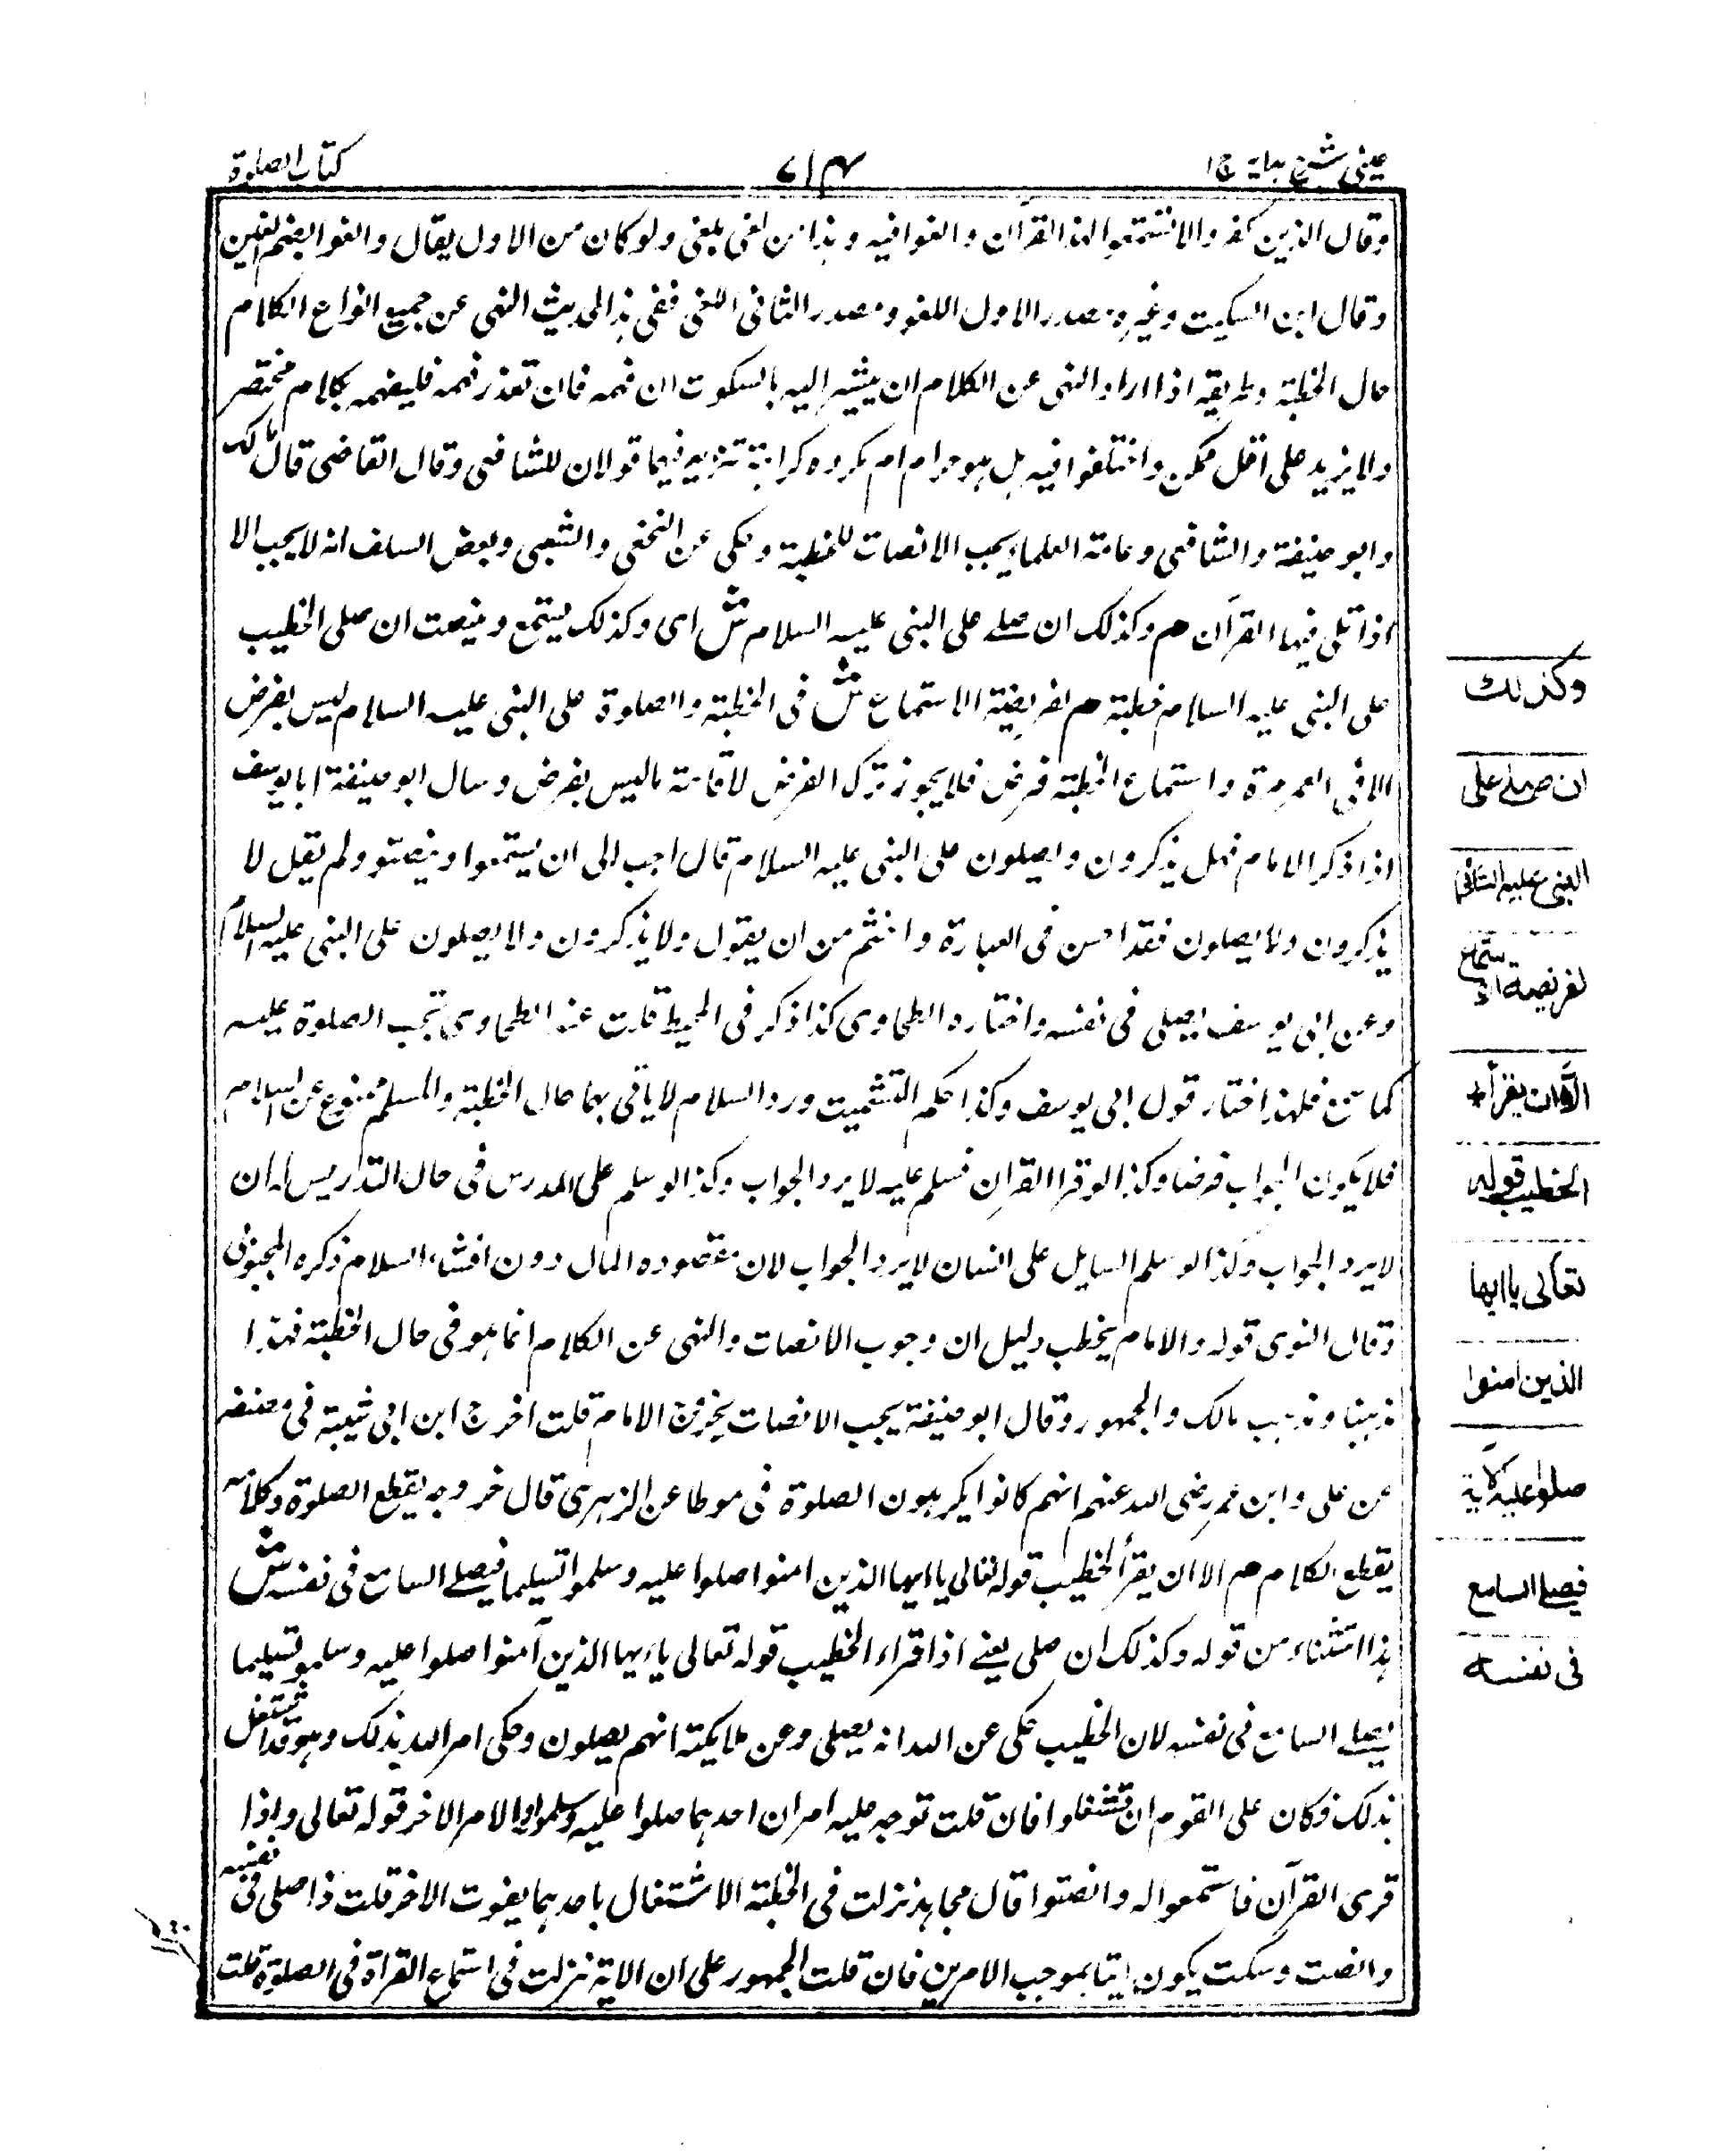 عينى شرح هداية ج ١
٧١٤
كتاب الصلوة
وقال الذين كفروا لا تستمعوا لهذا القرآن والغوا فيه وهذا من لغى يلغى ولو كان من الاول يقال والغوا بضم الغين
وقال ابن السكيت وغيره مصدر الاول اللغو ومصدر الثانى اللغى ففى هذا الحديث النهى عن جميع انواع الكلام
حال الخطبة وطريقه اذا اراد النهى عن الكلام ان يشير اليه بالسكوت ان فهمه فان تعذر فهمه فليفهمه بكلام مختصر
ولا يزيد على اقل ممكن واختلفوا فيه هل هو حرام ام مكروه كراهة تنزيه فيها قولان للشافعى وقال القاضى قال مالك
وابو حنيفة والشافعى وعامة العلماء يجب الانصات للخطبة وحكى عن النخعى والشعبى وبعض السلف انه لا يجب الا
اذا تلى فيها القرآن هم وكذلك ان صلے على النبى عليه السلام ش اى وكذلك يستمع وينصت ان صلى الخطيب
على النبى عليه السلام فى خطبته هم لفريضة الاستماع ش فى الخطبة والصلوة على النبى عليه السلام ليس بفرض
الا فى العمر مرة واستماع الخطبة فرض فلا يجوز ترك الفرض لاقامة ما ليس بفرض وسال ابو حنيفة ابا يوسف
اذا ذكر الامام فهل يذكرون ويصلون على النبى عليه السلام قال احب الى ان يستمعوا وينصتوا ولم يقل لا
يذكرون ولا يصلون فقد احسن فى العبارة واحتشم من ان يقول ولا يذكرون ولا يصلون على النبى عليه السلام
وعن ابى يوسف يصلى فى نفسه واختاره الطحاوى كذا ذكر فى المحيط قلت عند الطحاوى تجب الصلوة عليه
كما سمع فلهذا اختار قول ابى يوسف وكذا حكم التشميت ورد السلام لا ياتى بهما حال الخطبة والمسلم ممنوع عن السلام
فلا يكون الجواب فرضا وكذا لو قرا القرآن فسلم عليه لا يرد الجواب وكذا لو سلم على المدرس فى حال التدريس له ان
لا يرد الجواب وكذا لو سلم السايل على انسان لا يرد الجواب لان مقصوده المال دون افشاء السلام ذكره المحبوبى
وقال النووى قوله والامام يخطب دليل ان وجوب الانصات والنهى عن الكلام انما هو فى حال الخطبة فهذا
مذهبنا ومذهب مالك والجمهور وقال ابو حنيفة يجب الانصات بخروج الامام قلت اخرج ابن ابى شيبة فى مصنفه
عن على وابن عمر رضى الله عنهم انهم كانوا يكرهون الصلوة فى موطا عن الزهرى قال خروجه يقطع الصلوة وكلامه
يقطع الكلام هم الا ان يقرأ الخطيب قوله تعالى يا ايها الذين امنوا صلوا عليه وسلموا تسليما فيصلے السامع فى نفسه ش
هذا استثناء من قوله وكذلك ان صلى يعنے اذا قراء الخطيب قوله تعالى يا ايها الذين آمنوا صلوا عليه وسلموا تسليما
يصلے السامع فى نفسه لان الخطيب حكى عن الله انه يصلى وعن ملايكته انهم يصلون وحكى امر الله بذلك وهو قد اشتغل
بذلك فكان على القوم ان يشتغلوا فان قلت توجه عليه امران احدهما صلوا عليه وسلموا والامر الاخر قوله تعالى واذا
قرى القرآن فاستمعوا له وانصتوا قال مجاهد نزلت فى الخطبة الاشتغال باحدهما يفوت الاخر قلت اذا صلى فى نفسه
وانصت وسكت يكون اتيا بموجب الامرين فان قلت الجمهور على ان الاية نزلت فى استماع القراة فى الصلوة قلت
وكذلك
ان صلے على
النبى عليه السلام
لفريضة الاستماع
الا ان يقرأ
الخطيب قوله
تعالى يا ايها
الذين امنوا
صلوا عليه الآية
فيصلے السامع
فى نفسه